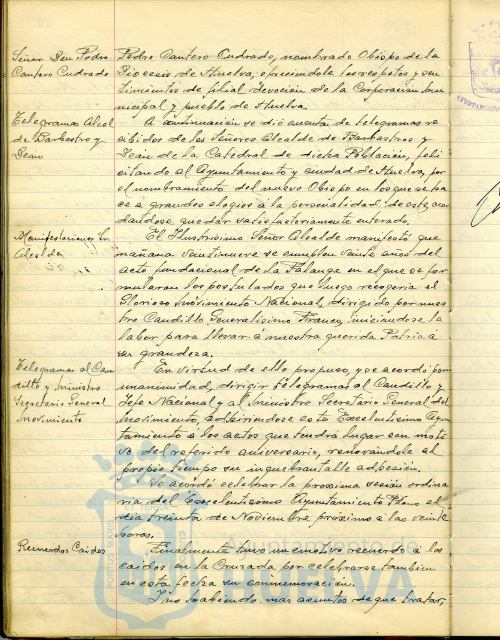 Señor Don Pedro
Cantero Cuadrado
Pedro Cantero Cuadrado, nombrado Obispo de la
Diocesis de Huelva, ofreciendole los respetos y sen
timientos de filial devoción de la Corporación Mu
nicipal y pueblo de Huelva.
Telegramas Alcal
de Barbastro y
Dean
A continuación se dió cuenta de telegramas re
cibidos de los Señores Alcalde de Barbastro y
Dean de la Catedral de dicha Población, feli
citando al Ayuntamiento y ciudad de Huelva, por
el nombramiento del nuevo Obispo en los que se ha
ce a grandes elogios a la personalidad de este, acor
dandose quedar satisfactoriamente enterado.
Manifestaciones Sr.
Alcalde
El Ilustrisimo Señor Alcalde manifestó que
mañana veintinueve se cumplen veinte años del
acto fundacional de la Falange en el que se for
mularon los postulados que luego recogeria el
Glorioso Movimiento Nacional, dirigido por nues
tro Caudillo Generalisimo Franco, iniciandose la
labor para llevar a nuestra querida Patria a
su grandeza.
Telegramas al Cau
dillo y Ministro
Secretario General
Movimiento
En virtud de ello propuso, y se acordó por
unanimidad, dirigir telegramas al Caudillo y
Jefe Nacional y al Ministro Secretario General del
Movimiento, adhiriendose este Excelentisimo Ayun
tamiento a los actos que tendrá lugar con moti
vo del referido aniversario, renovándole al
propio tiempo su inquebrantable adhesión.
Se acordó celebrar la proxima sesión ordina
ria del Excelentisimo Ayuntamiento Pleno el
dia treinta de Noviembre próximo a las veinte
horas.
Recuerdos Caidos
Finalmente tuvo un emotivo recuerdo a los
caidos en la Cruzada por celebrarse tambien
en esta fecha su conmemoración.
Y no habiendo mas asuntos de que tratar,
Ayuntamiento de
HUELVA